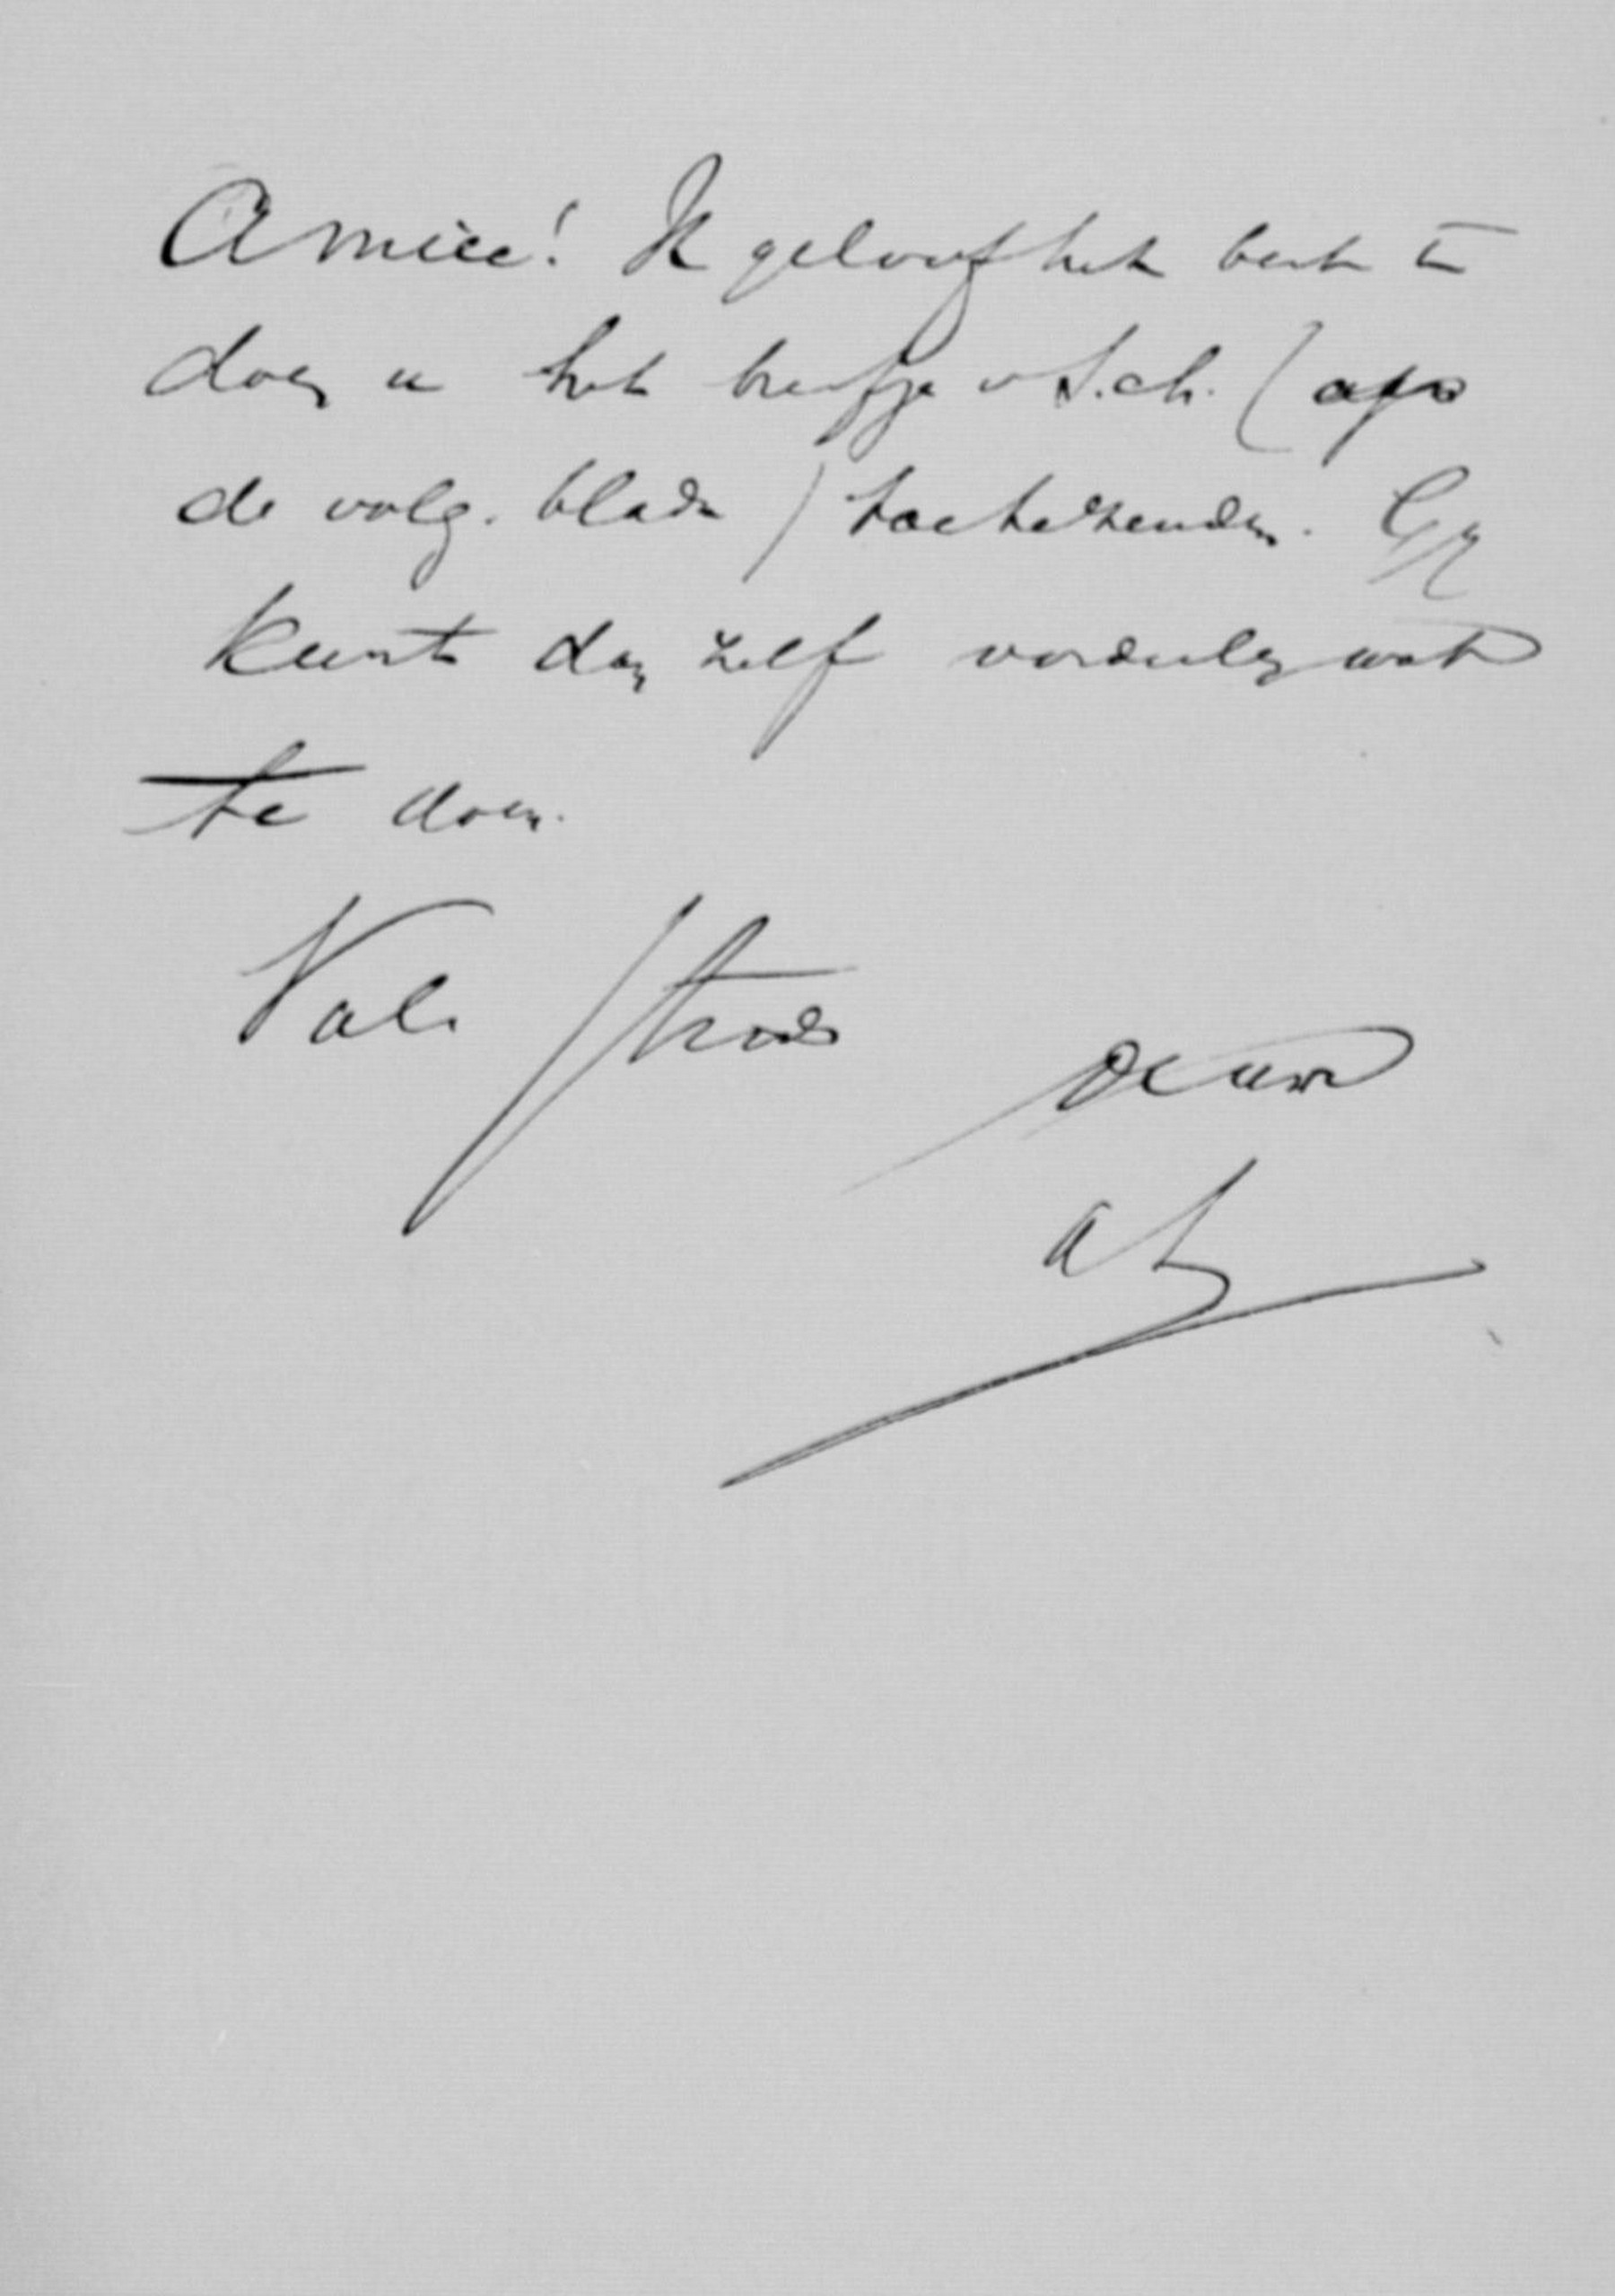 Amice! Ik geloof het best te
doen u het briefje v S.ch. (op
de volg. blade) toetezenden. Gy
kunt dan zelf oordeelen wat
te doen.
Vale
de uwe